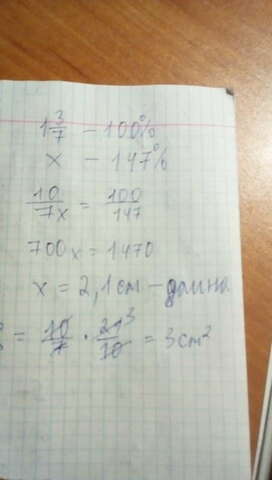 1 3/7 – 100%
x – 147%
10/7x = 100/147
700x = 1470
x = 2,1 см – длина
= 10/7 · 21³/10 = 3 см²